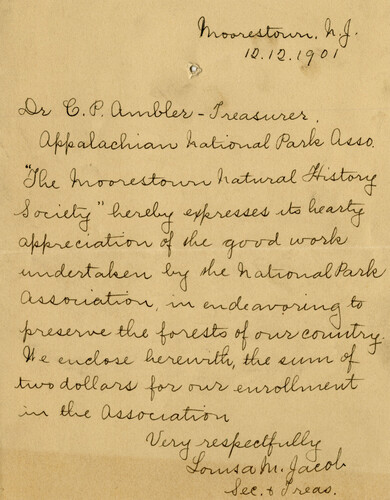 Moorestown, N.J.
12.12.1901
Dr C. P. Ambler - Treasurer,
Appalachian National Park Asso.
"The Moorestown Natural History
Society" hereby expresses its hearty
appreciation of the good work
undertaken by the National Park
Association, in endeavoring to
preserve the forests of our country.
We enclose herewith, the sum of
two dollars for our enrollment
in the Association
Very respectfully
Louisa M. Jacob
Sec. & Treas.